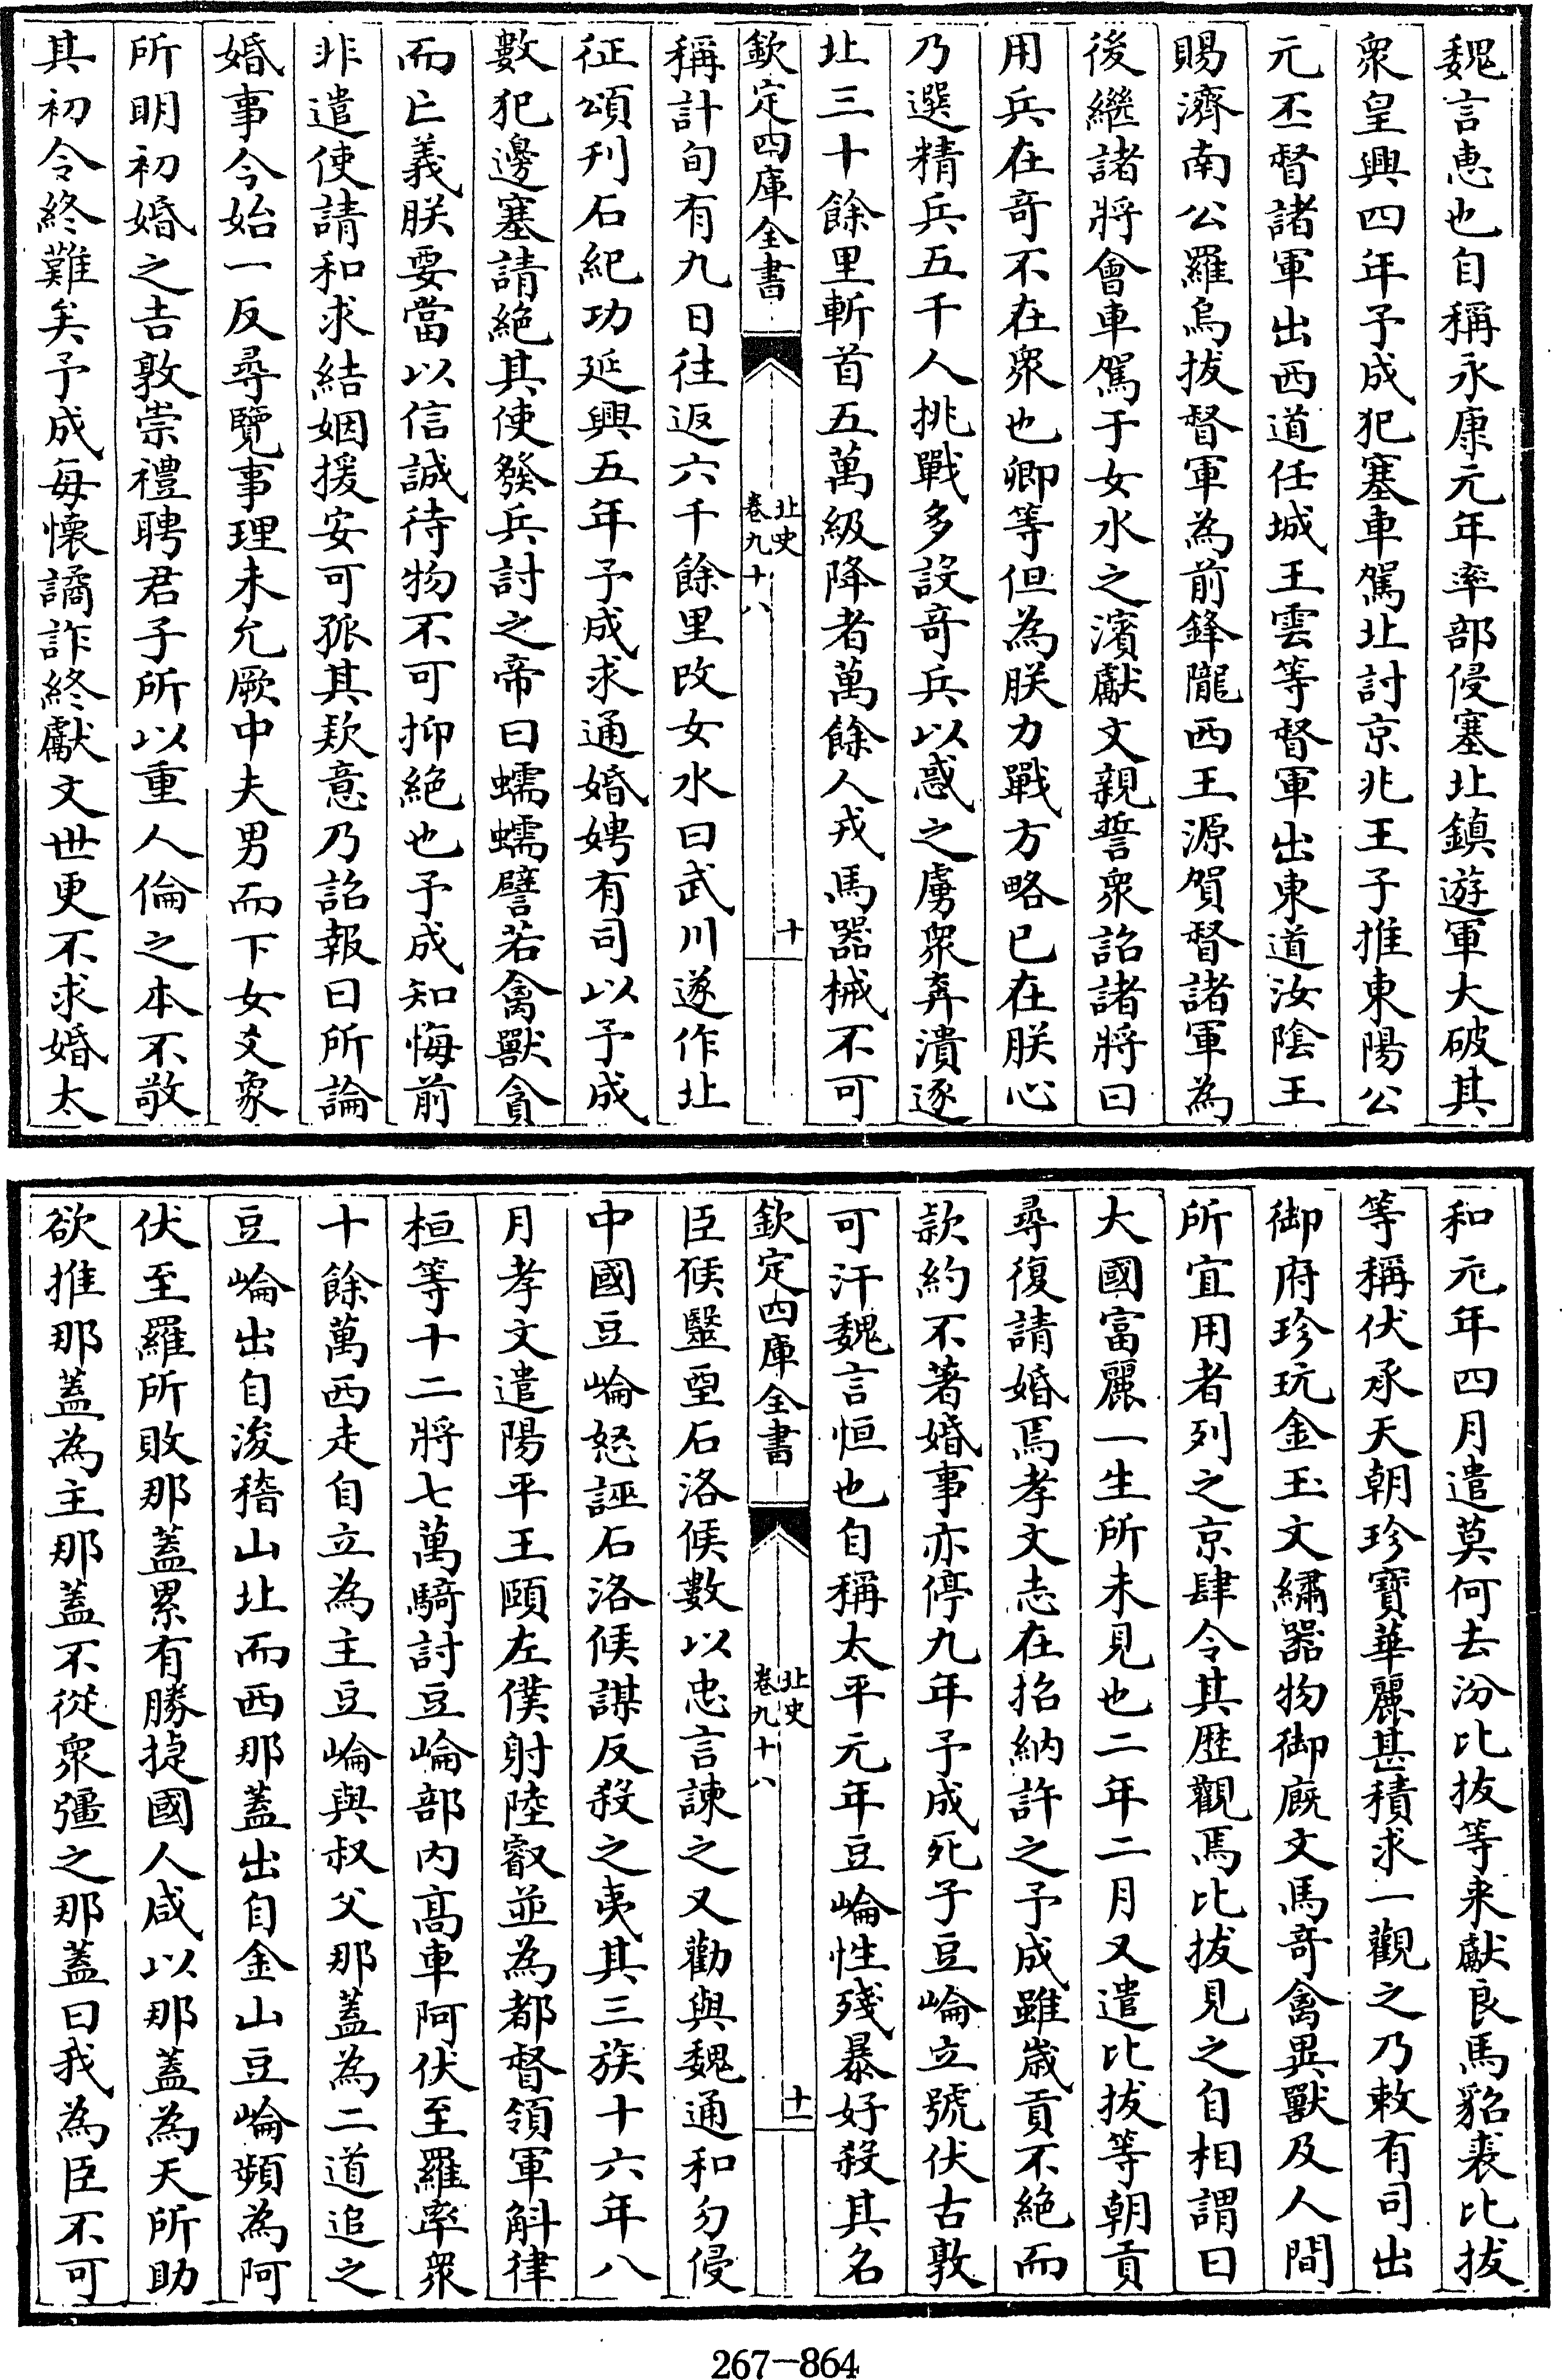 魏言惠也自稱永康元年率部侵塞北鎮遊軍大破其
衆皇興四年予成犯塞車駕北討京兆王子推東陽公
元丕督諸軍出西道任城王雲等督軍出東道汝陰王
賜濟南公羅烏拔督軍為前鋒隴西王源賀督諸軍為
後繼諸將會車駕于女水之濱獻文親誓衆詔諸將曰
用兵在奇不在衆也卿等但為朕力戰方略已在朕心
乃選精兵五千人挑戰多設奇兵以惑之虜衆奔潰逐
北三十餘里斬首五萬級降者萬餘人戎馬器械不可
欽定四庫全書
北史
卷九十八
十
稱計旬有九日往返六千餘里改女水曰武川遂作北
征頌刋石紀功延興五年予成求通婚娉有司以予成
數犯邊塞請絶其使發兵討之帝曰蠕蠕譬若禽獸貪
而亡義朕要當以信誠待物不可抑絶也予成知悔前
非遣使請和求結姻援安可孤其欵意乃詔報曰所論
婚事今始一反尋覽事理未允厥中夫男而下女爻象
所明初婚之吉敦崇禮聘君子所以重人倫之本不敬
其初令終難矣予成每懷譎詐終獻文世更不求婚太
和元年四月遣莫何去汾比拔等来獻良馬貂裘比拔
等稱伏承天朝珍寳華麗甚積求一觀之乃敕有司出
御府珍玩金玉文繡器物御廐文馬奇禽異獸及人間
所宜用者列之京肆令其歴觀焉比拔見之自相謂曰
大國富麗一生所未見也二年二月又遣比拔等朝貢
尋復請婚焉孝文志在招納許之予成雖歲貢不絶而
欵約不著婚事亦停九年予成死子豆崘立號伏古敦
可汗魏言恒也自稱太平元年豆崘性殘暴好殺其名
欽定四庫全書
北史
卷九十八
十一
臣侯毉垔石洛侯數以忠言諌之又勸與魏通和勿侵
中國豆崘怒誣石洛侯謀反殺之夷其三族十六年八
月孝文遣陽平王頤左僕射陸叡並為都督領軍斛律
桓等十二將七萬騎討豆崘部内髙車阿伏至羅率衆
十餘萬西走自立為主豆崘與叔父那蓋為二道追之
豆崘出自浚稽山北而西那蓋出自金山豆崘頻為阿
伏至羅所敗那蓋累有勝捷國人咸以那蓋為天所助
欲推那蓋為主那蓋不從衆彊之那蓋曰我為臣不可
267-864